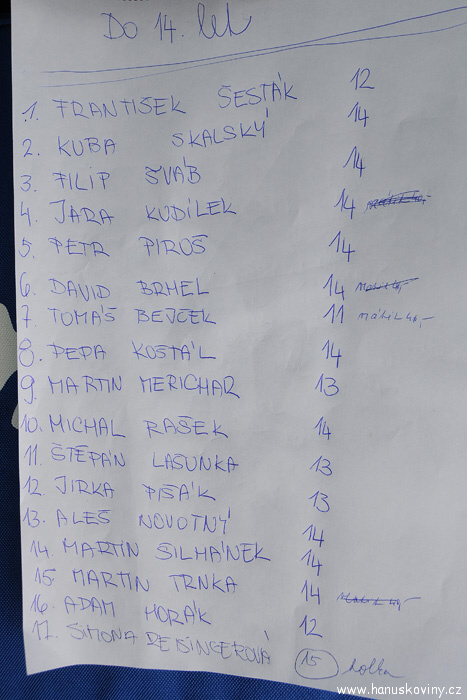 Do 14. let
1. FRANTIŠEK ŠESTÁK 12
2. KUBA SKALSKÝ 14
3. FILIP ŠVÁB 14
4. JÁRA KUDILEK 14
5. PETR PIROŠ 14
6. DAVID BRHEL 14
7. TOMÁŠ BEJČEK 11
8. PEPA KOŠŤÁL 14
9. MARTIN MERICHAR 13
10. MICHAL RAŠEK 14
11. ŠTĚPÁN LASUNKA 13
12. JIRKA PIŠÁK 13
13. ALEŠ NOVOTNÝ 14
14. MARTIN SILHÁNEK 14
15. MARTIN TRNKA 14
16. ADAM HORÁK 12
17. SIMONA REISINGEROVÁ 15 holka
www.hanuskoviny.cz